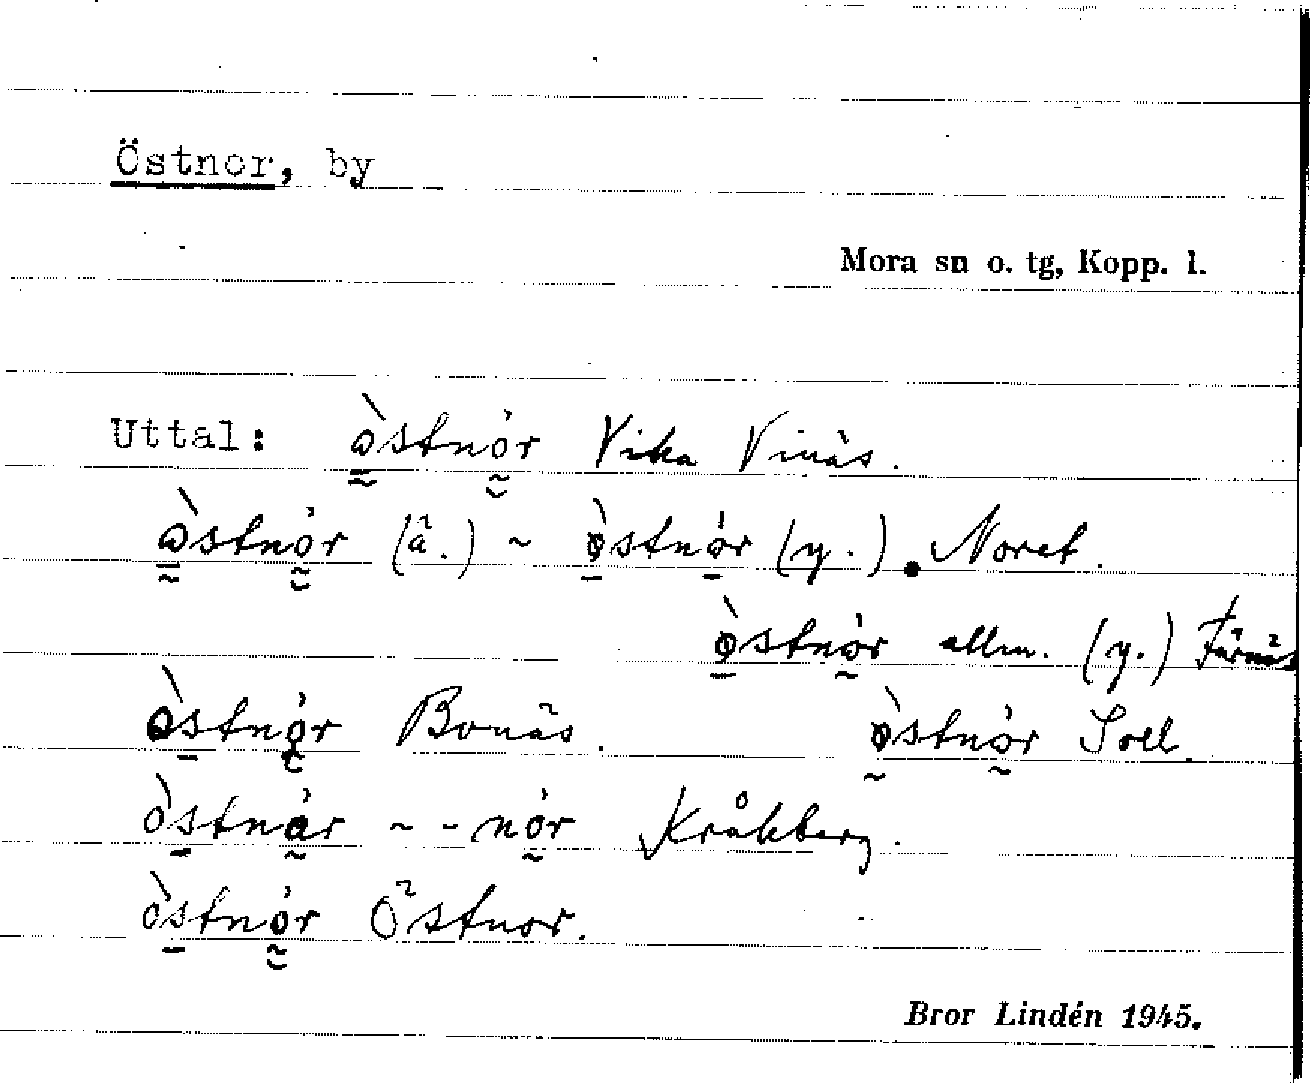 Östnor, by
Mora sn o. tg, Kopp. l.
Uttal: òstnór Vika Vinäs.
òstnór (ä.) ~ òstnór (y.). Noret.
òstnór allm. (y.) Färnäs
òstnór Bonäs. òstnór Soll.
òstnár ~ -nór Kråkberg.
òstnór Östnor.
Bror Lindén 1945.